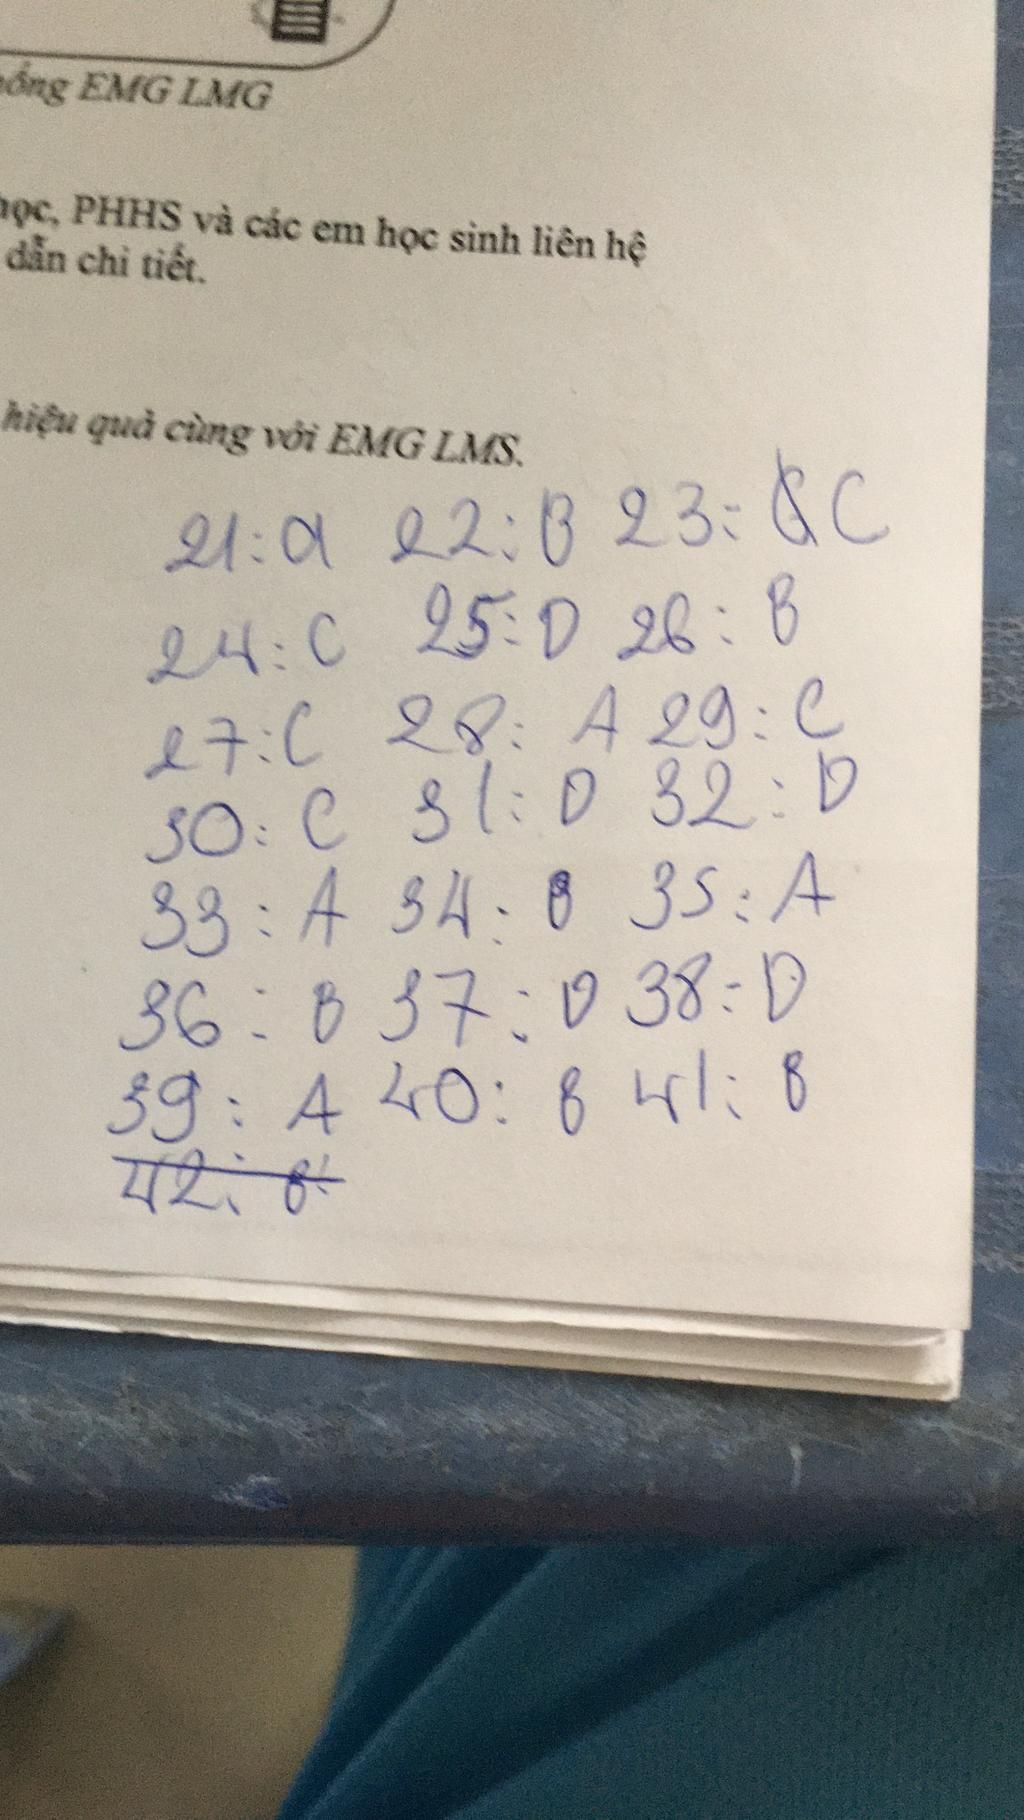 hống EMG LMG
học, PHHS và các em học sinh liên hệ
dẫn chi tiết.
hiệu quả cùng với EMG LMS.
21: A 22: B 23: C
24: C 25: D 26: B
27: C 28: A 29: C
30: C 31: D 32: D
33: A 34: B 35: A
36: B 37: D 38: D
39: A 40: B 41: B
42: B